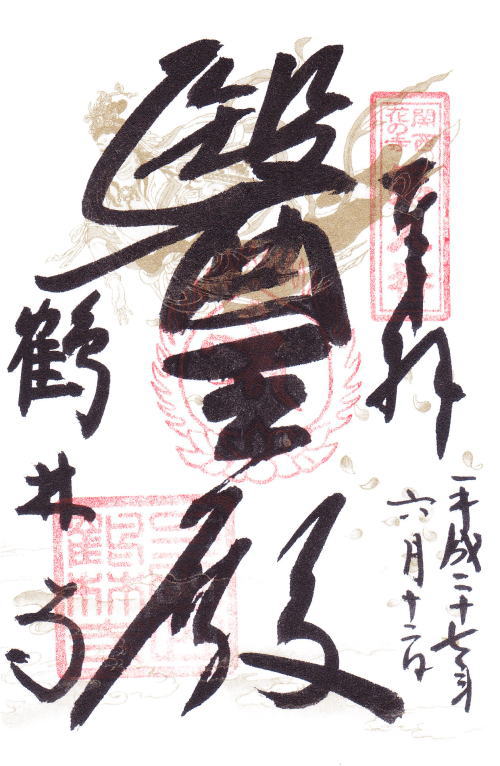 関西
花の寺
奉拝
平成二十七年
六月十二日
醫王殿
鶴林寺